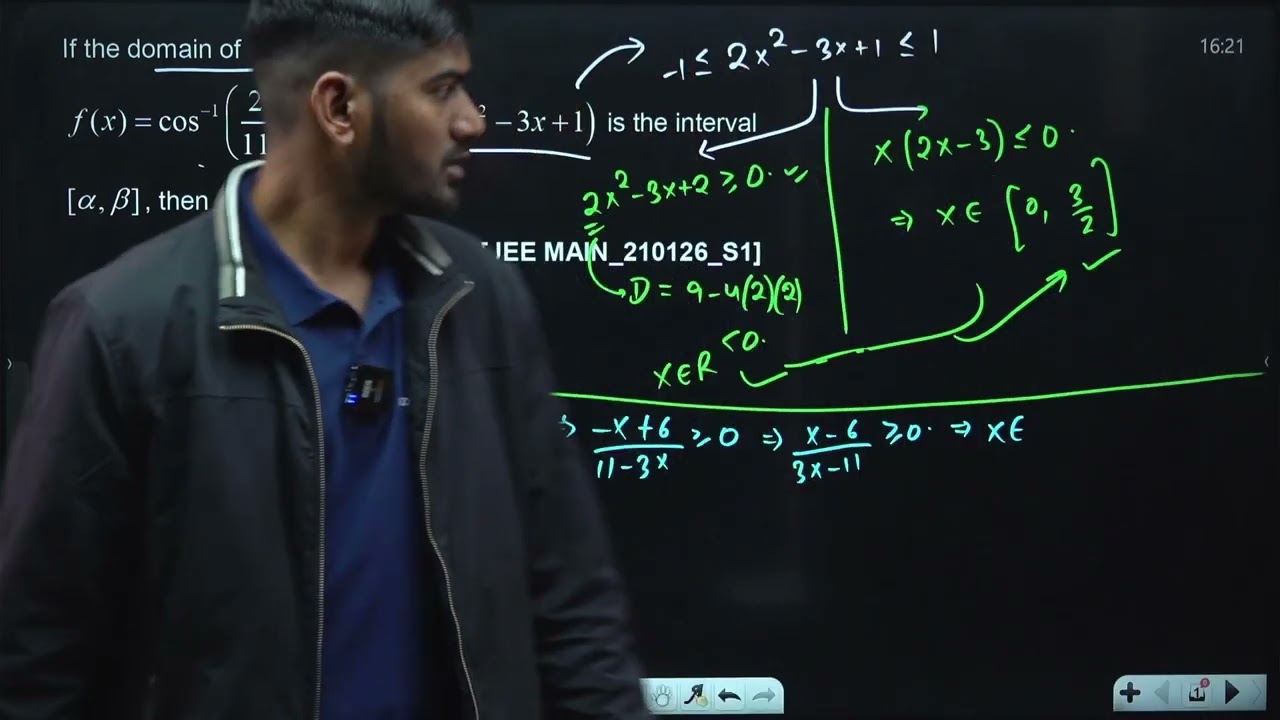 If the domain of
f(x) = cos⁻¹(2
11
² − 3x + 1) is the interval
[α, β], then
JEE MAIN_210126_S1]
16:21
-1 ≤ 2x² - 3x + 1 ≤ 1
2x² - 3x + 2 ≥ 0.
D = 9 - 4(2)(2)
< 0.
x∈R
x(2x - 3) ≤ 0.
⇒ x ∈ [0, 3/2]
⇒ (-x + 6)/(11 - 3x) ≥ 0 ⇒ (x - 6)/(3x - 11) ≥ 0. ⇒ x ∈
1